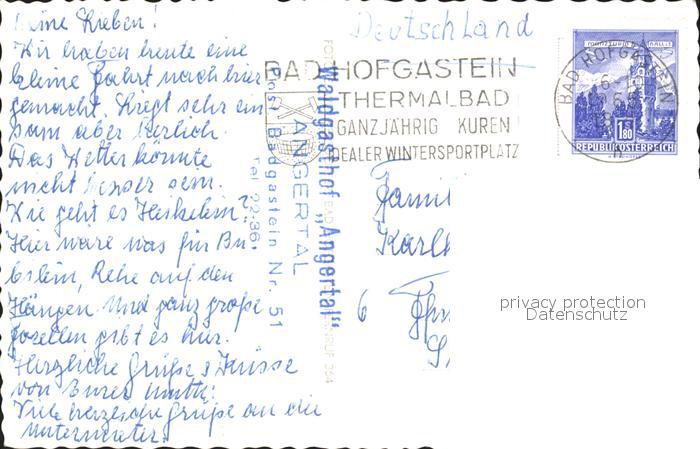 Meine Lieben!
Wir haben heute eine
kleine Fahrt nach hier
gemacht. Liegt sehr ein
sam aber herlich.
Das Wetter könnte
nicht besser sein.
Wie geht es
Hier wäre was für Bu
Rehe auf den
Hängen. Und ganz große
Forellen gibt es hier.
Herzliche Grüße & Küsse
von Eurer Mutti.
Viele herzliche Grüße an die
Untermieter.
Deutschland
BAD HOFGASTEIN
THERMALBAD
GANZJÄHRIG KUREN
IDEALER WINTERSPORTPLATZ
BAD HOFGASTEIN
1.80
REPUBLIK ÖSTERREICH
Waldgasthof „Angertal“
ANGERTAL
Post Badgastein Nr. 51
Tel. 22-36
Famil
Karl
6
privacy protection
Datenschutz